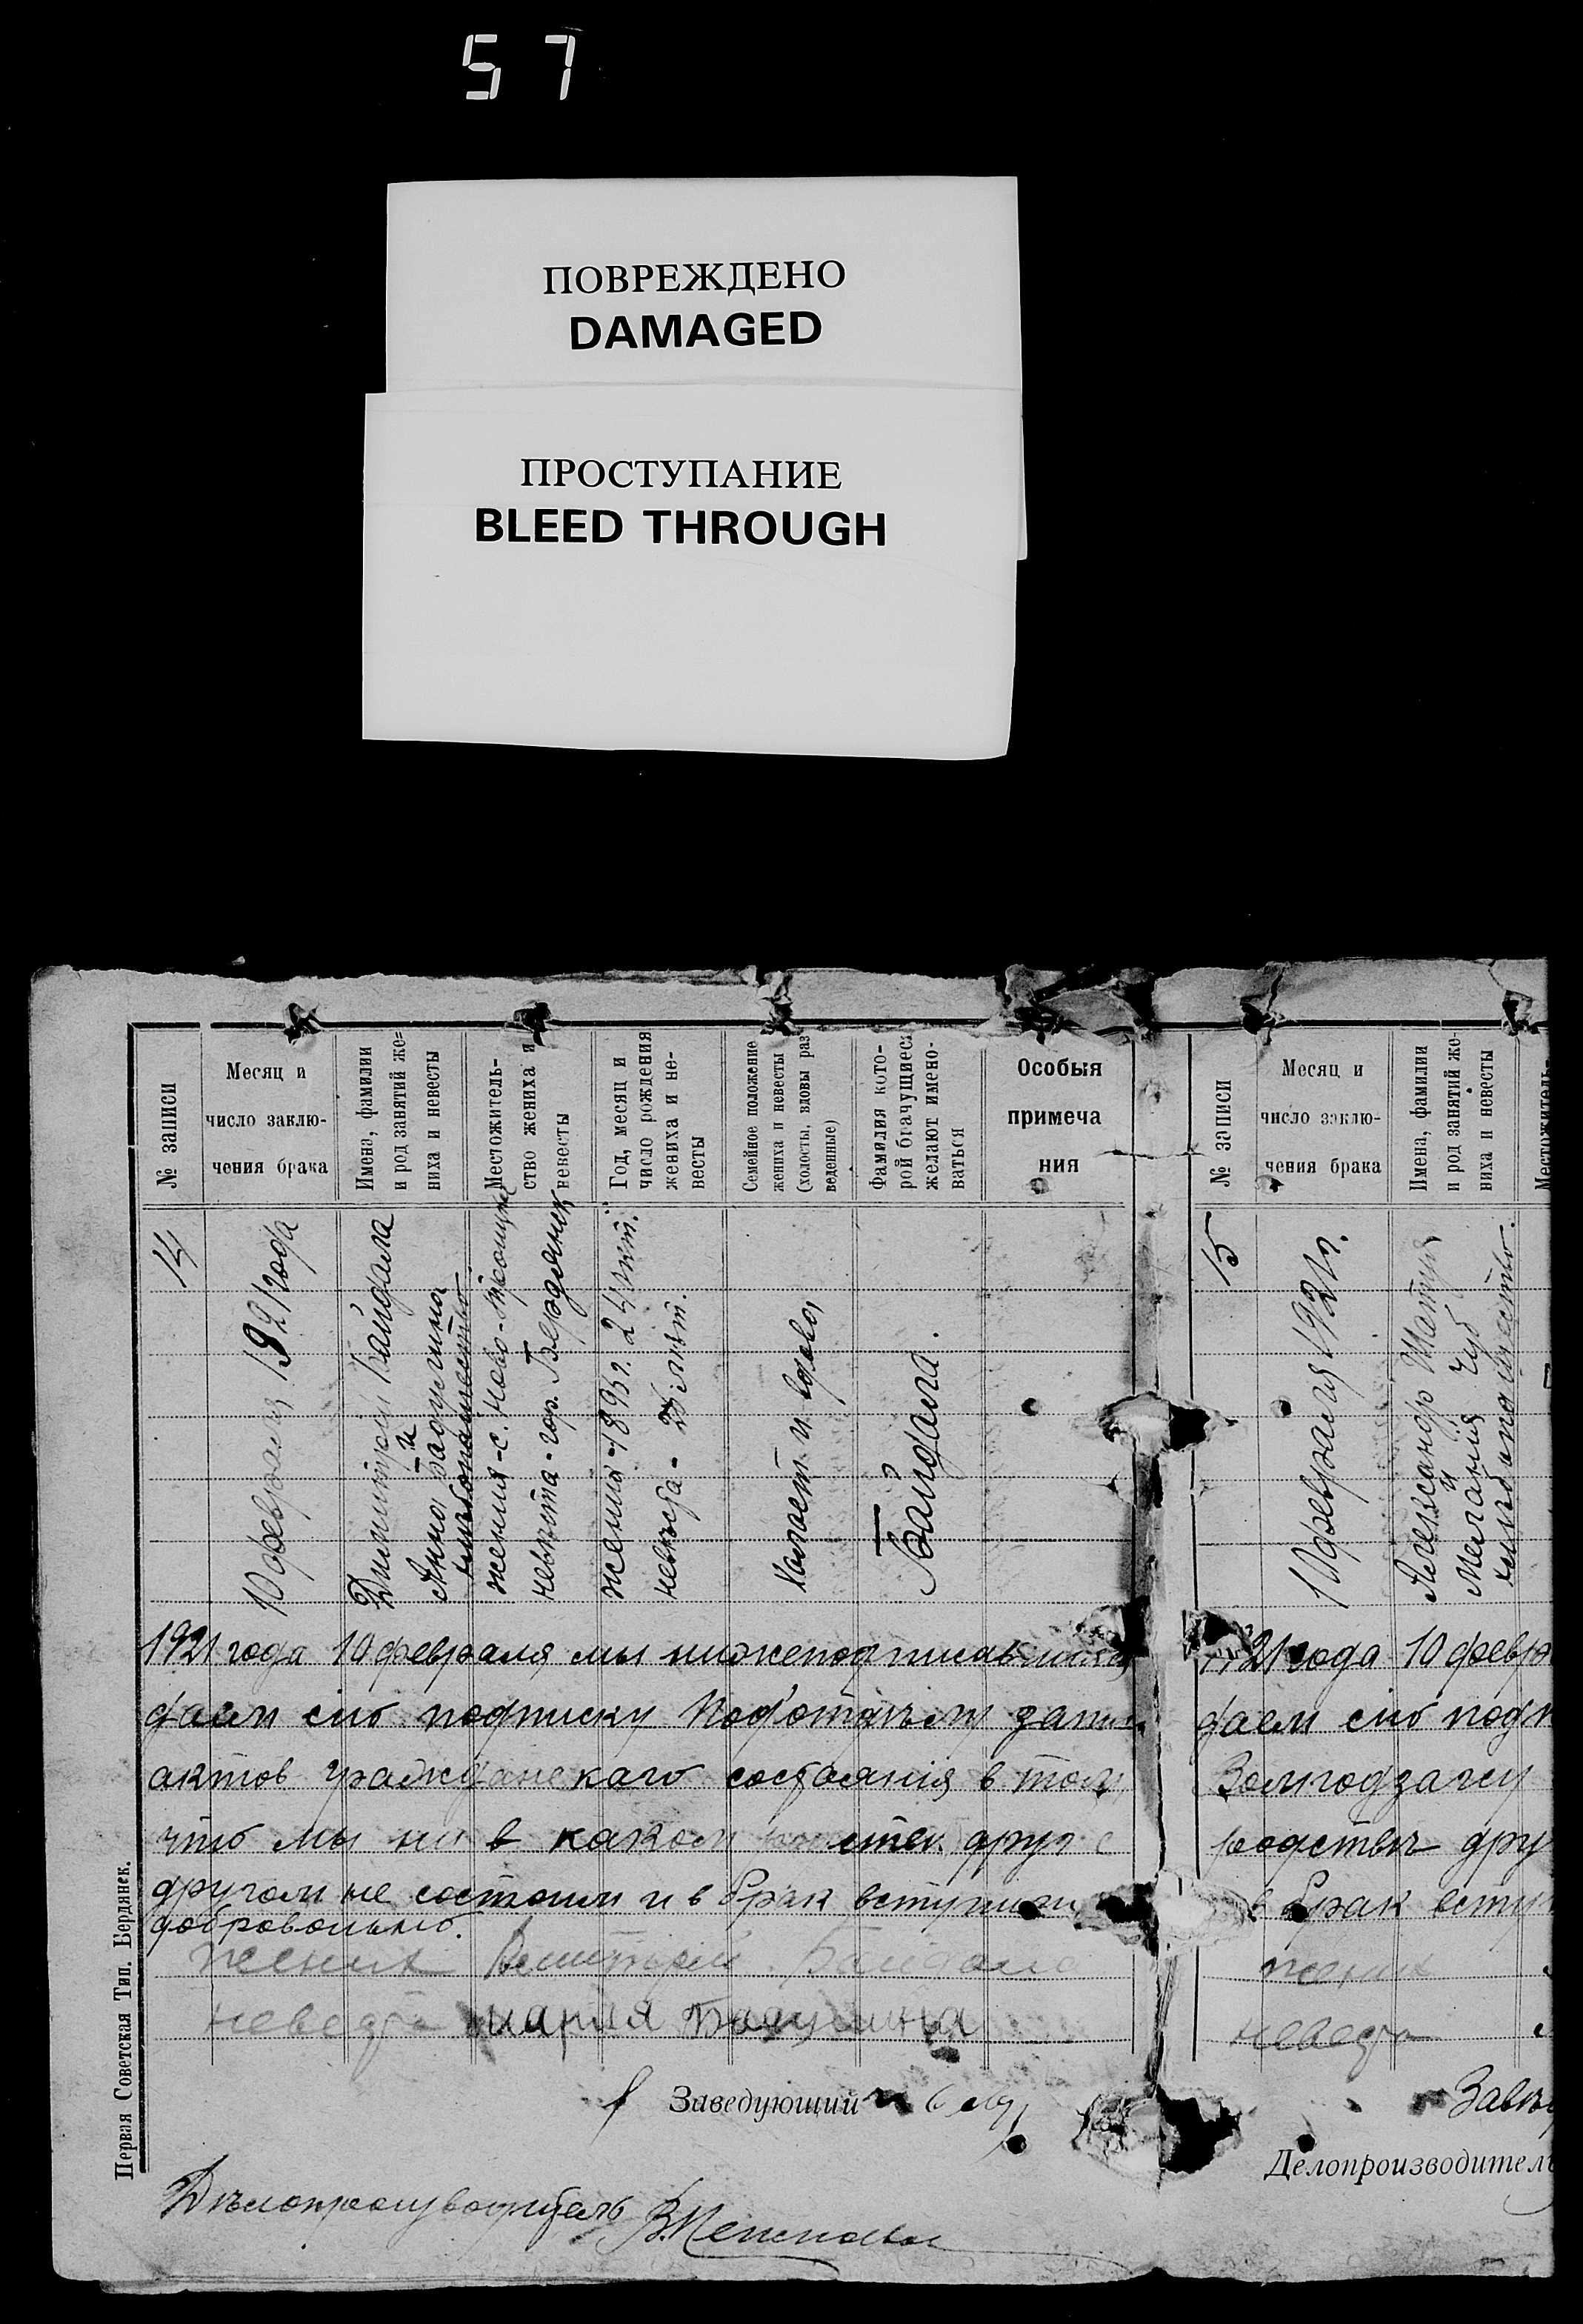 57
ПОВРЕЖДЕНО
DAMAGED
ПРОСТУПАНИЕ
BLEED THROUGH
№ записи
Месяц и
число заклю-
чения брака
Имена, фамилии
и род занятий же-
ниха и невесты
Местожитель-
ство жениха и
невесты
Год, месяц и
число рождения
жениха и не-
весты
Семейное положение
жениха и невесты
(холосты, вдовы раз
веденные)
Фамилия кото-
рой брачущиес
желают имено-
ваться
Особыя
примеча
ния
14
10 февраля 1921 года
Димитрий Байдала
и
Анна
хлебопашество
жених - с. Ново-Троицк
невеста - гор. Бердянск
жених - 1895 г. 24 лет.
невеста - лет.
холост и вдова
Байдала.
1921 года 10 февраля мы нижеподписавшиеся
даем сию подписку Подотделу запис
актов гражданскаго состояния в том
что мы ни в каком друг с
другом не состоим и в брак вступили
добровольно.
жених Димитрий Байдала
невеста Мария
Заведующий
Делопроизводитель
Первая Советская Тип. Бердянск.
№ записи
Месяц и
число заклю-
чения брака
Имена, фамилии
и род занятий же-
ниха и невесты
Местожитель-
15
10 февраля 1921 г.
Александр
и
Мелания Чуб
хлебопашество.
21 года 10 февра
даем сию подп
родстве дру
в брак всту
жених
невеста
Заве
Делопроизводитель